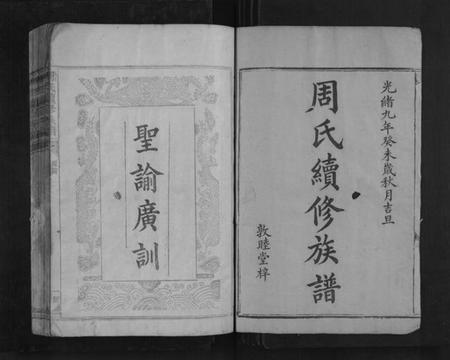 光緒九年癸未歲秋月吉旦
周氏續修族譜
敦睦堂梓
聖諭廣訓